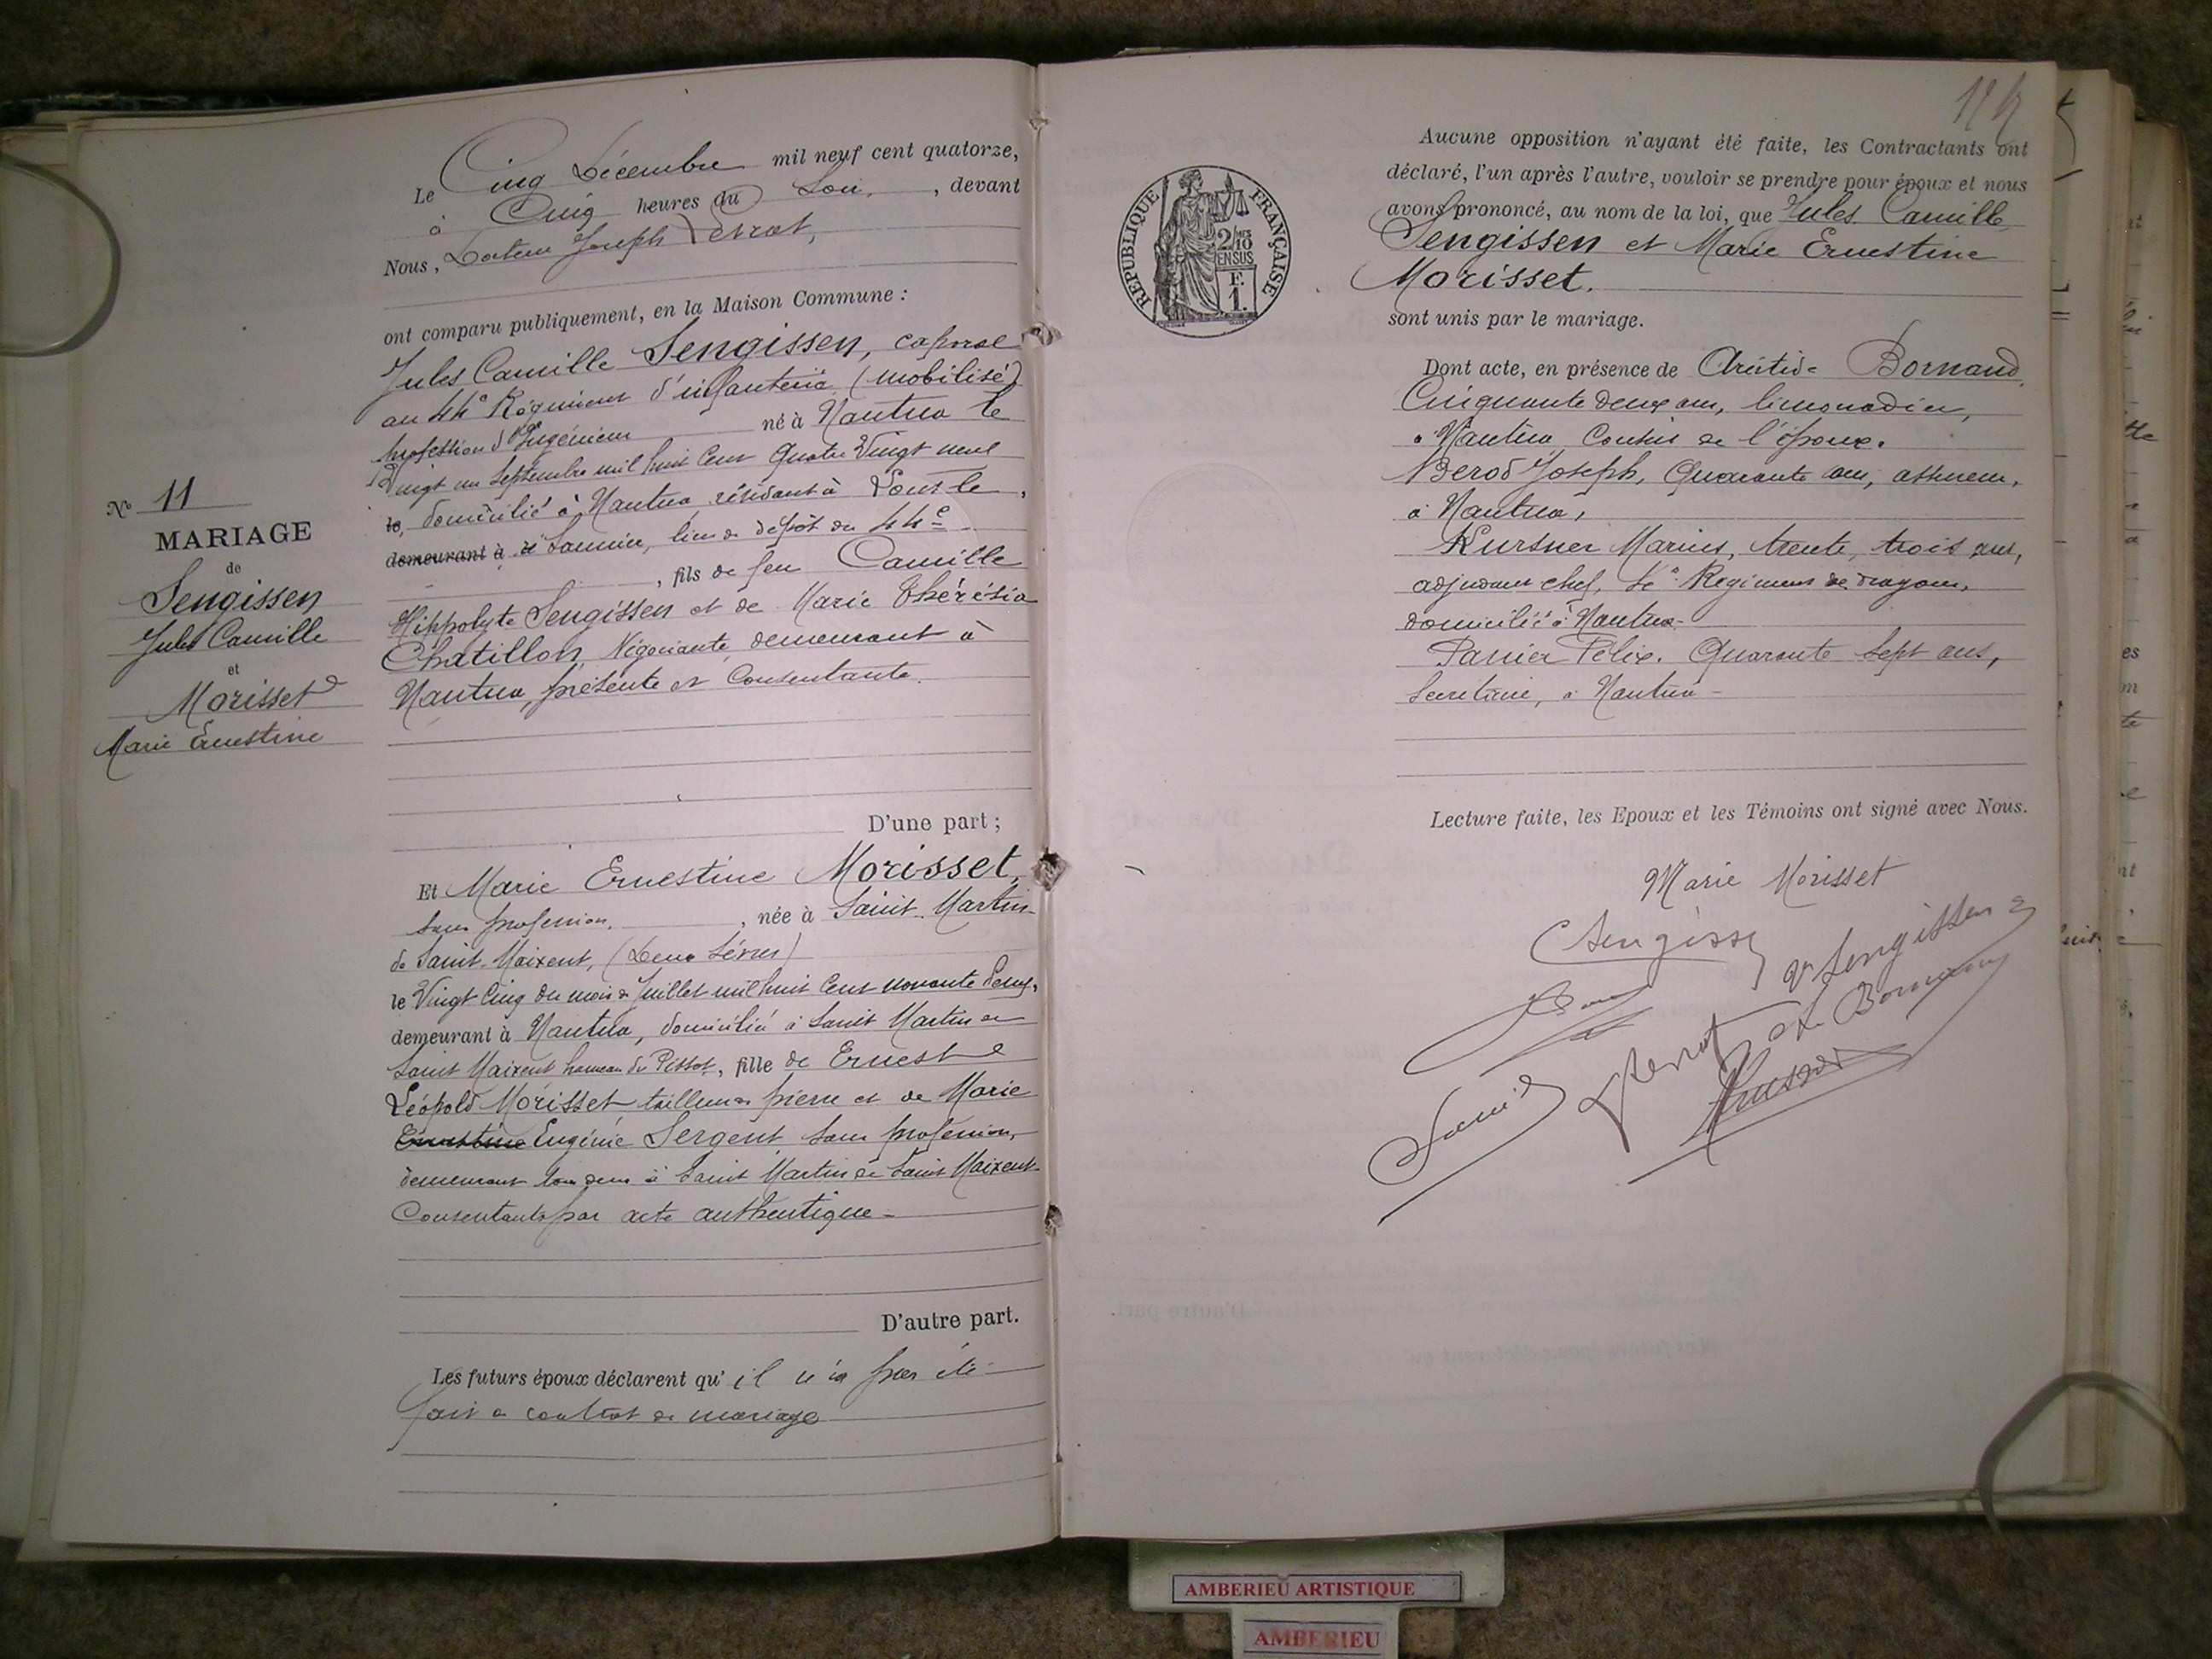 Nº 11
MARIAGE
de
Sengissen
Jules Camille
et
Morisset
Marie Ernestine
Le Cinq Décembre mil neuf cent quatorze,
à Cinq heures du Soir, , devant
Nous, Docteur Joseph Perrat,
ont comparu publiquement, en la Maison Commune :
Jules Camille Sengissen, caporal
au 44e Régiment d'infanterie (mobilisé)
profession d'Ingénieur né à Nantua le
Vingt un Septembre mil huit Cent Quatre Vingt neuf
le, domicilié à Nantua, résidant à Lons le
demeurant à Saunier, lieu de dépôt du 44e
, fils de feu Camille
Hippolyte Sengissen et de Marie Thérésia
Chatillon, Négociante, demeurant à
Nantua, présente et Consentante.
D'une part ;
Et Marie Ernestine Morisset,
sans profession, , née à Saint-Martin-
de Saint-Maixent, (Deux Sèvres)
le Vingt Cinq du mois de Juillet mil huit Cent novante deux,
demeurant à Nantua, domiciliée à Saint Martin de
Saint Maixent hameau du Pissot, fille de Ernest
Léopold Morisset tailleur de pierre et de Marie
Ernestine Eugénie Sergent, sans profession,
demeurant tous deux à Saint Martin de Saint Maixent
Consentants par acte authentique
D'autre part.
Les futurs époux déclarent qu' il n'a pas été
fait de contrat de mariage
Aucune opposition n'ayant été faite, les Contractants ont
déclaré, l'un après l'autre, vouloir se prendre pour époux et nous
avons prononcé, au nom de la loi, que Jules Camille
Sengissen et Marie Ernestine
Morisset.
sont unis par le mariage.
Dont acte, en présence de Aristide Bornand,
Cinquante deux ans, limonadier,
à Nantua Cousin de l'époux.
Berod Joseph, Quarante ans, assureur,
à Nantua,
Kursner Marius, trente trois ans,
adjudant chef, Régiment de dragons,
domicilié à Nantua
Panier Félix. Quarante Sept ans,
Secrétaire, à Nantua
Lecture faite, les Epoux et les Témoins ont signé avec Nous.
Marie Morisset
CSengissen
Vve Sengissen
Perrat
Bornand
REPUBLIQUE FRANÇAISE
2/10 MES
EN SUS
F.
1.
AMBERIEU ARTISTIQUE
AMBERIEU